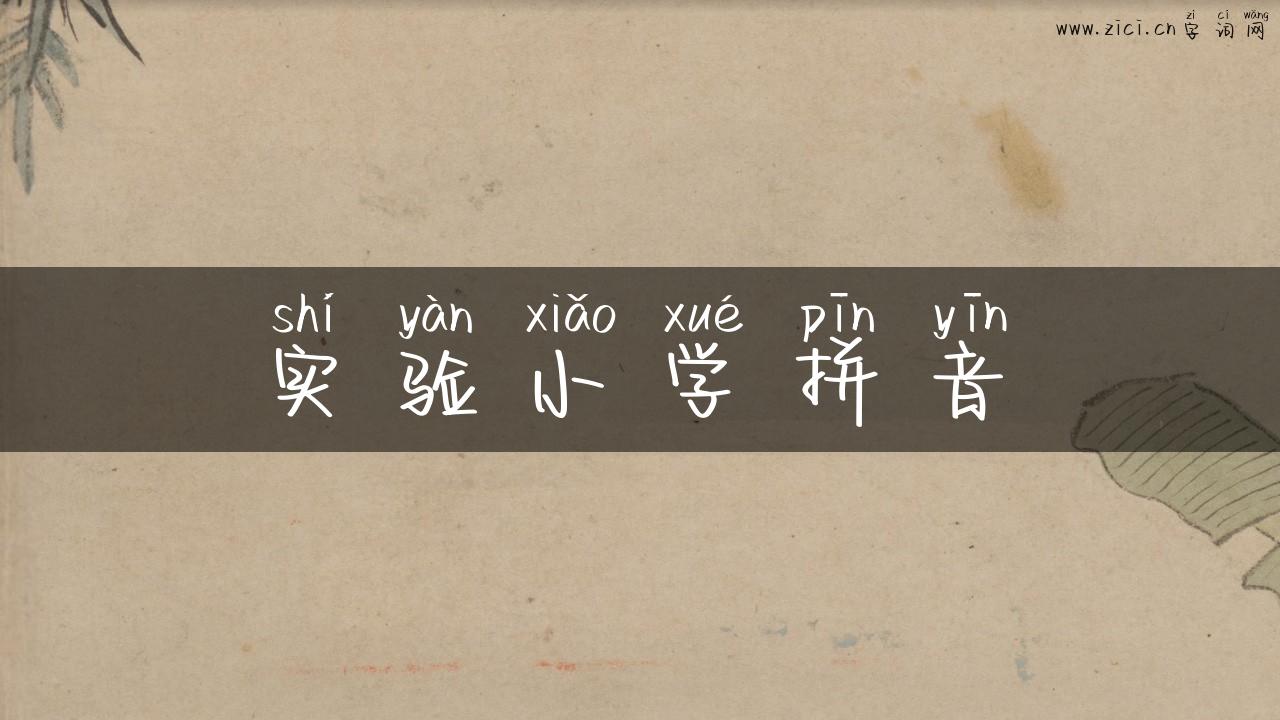 zì cí wǎng
www.zici.cn 字词网
shí yàn xiǎo xué pīn yīn
实验小学拼音